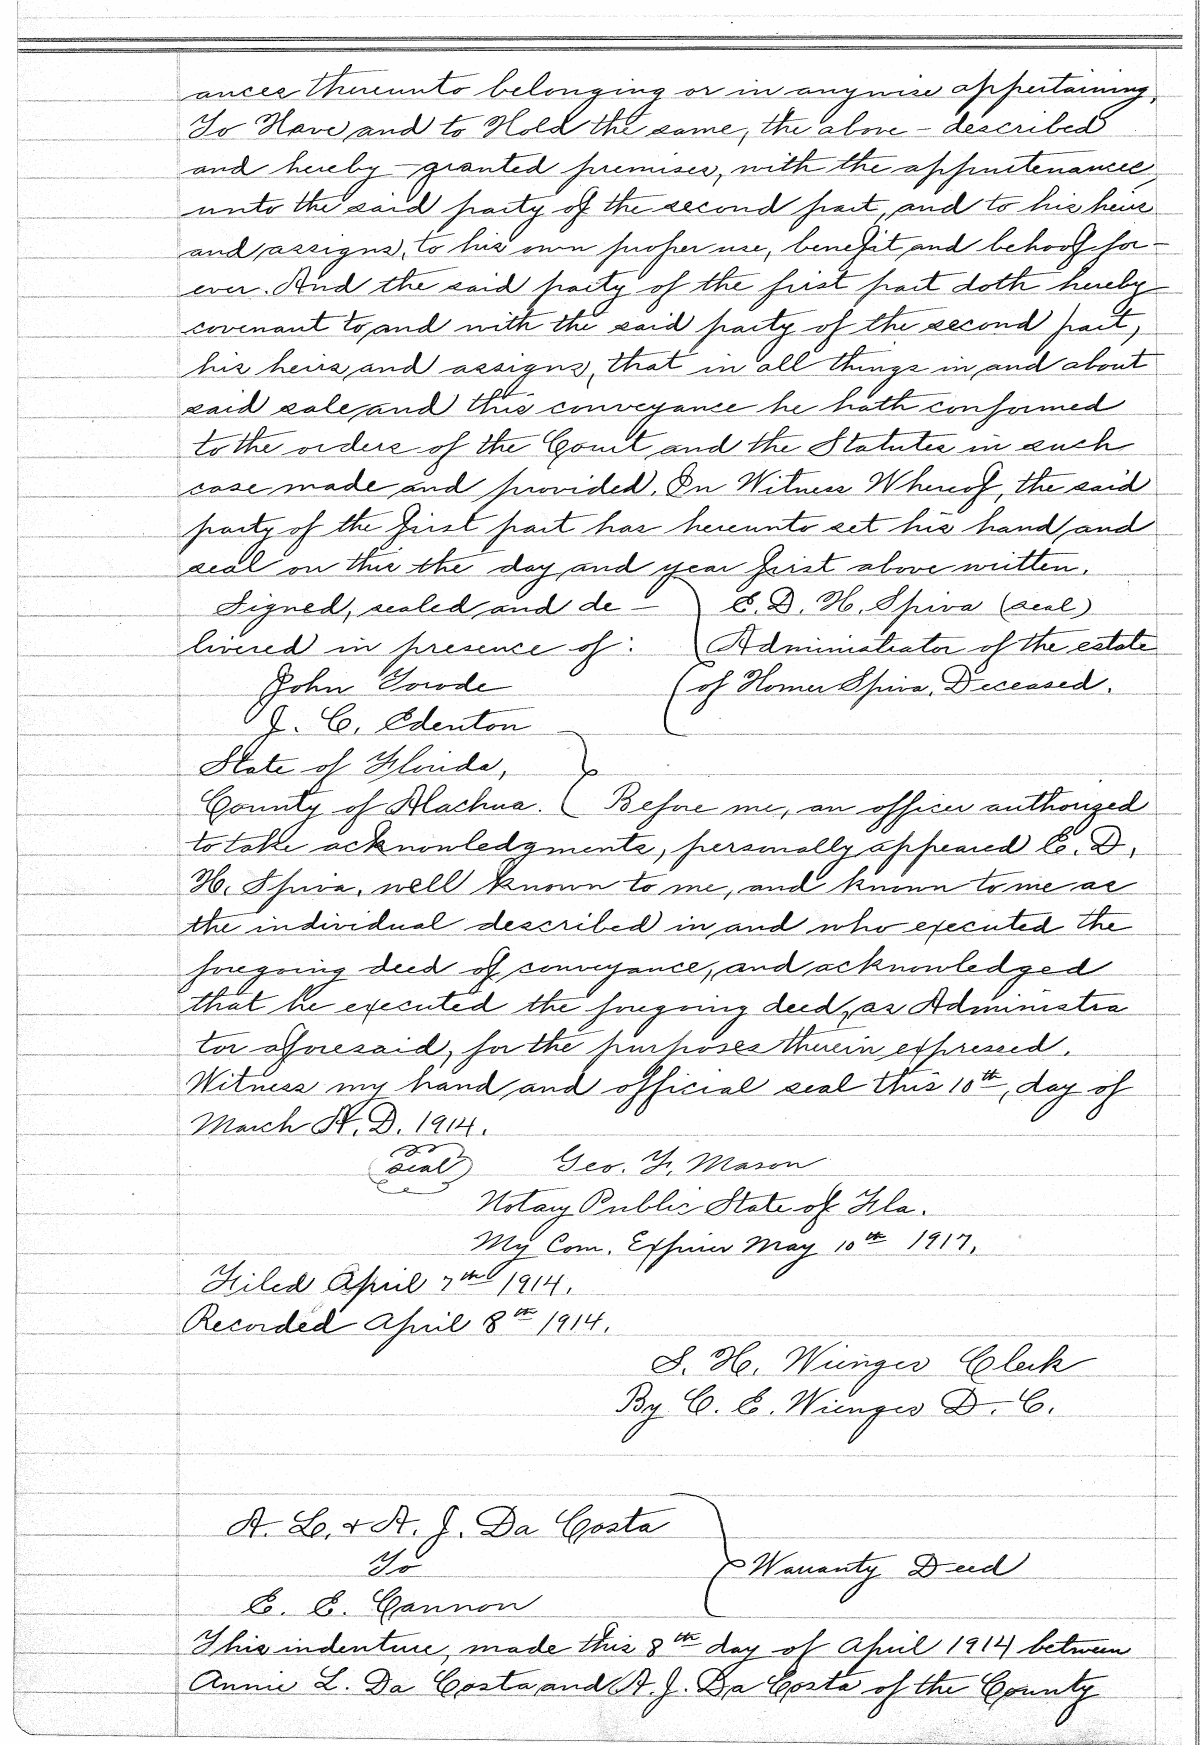 ances thereunto belonging or in anywise appertaining,
To Have and to Hold the same, the above-described
and hereby-granted premises, with the appurtenances,
unto the said party of the second part, and to his heirs
and assigns, to his own proper use, benefit and behoof for-
ever. And the said party of the first part doth hereby
covenant to and with the said party of the second part,
his heirs and assigns, that in all things in and about
said sale and this conveyance he hath conformed
to the orders of the Court and the Statutes in such
case made and provided. In Witness Whereof, the said
party of the first part has hereunto set his hand and
seal on this the day and year first above written.
Signed, sealed and de- E. D. H. Spiva (seal)
livered in presence of: Administrator of the estate
John Towde of Homer Spiva, Deceased.
J. C. Edenton
State of Florida,
County of Alachua. Before me, an officer authorized
to take acknowledgments, personally appeared E. D.
H. Spiva, well known to me, and known to me as
the individual described in and who executed the
foregoing deed of conveyance, and acknowledged
that he executed the foregoing deed, as Administra
tor aforesaid, for the purposes therein expressed.
Witness my hand and official seal this 10th, day of
March A. D. 1914.
seal Geo. F. Mason
Notary Public State of Fla.
My Com. Expires May 10th 1917.
Filed April 7th 1914.
Recorded April 8th 1914.
S. H. Wienges Clerk
By C. E. Wienges D. C.
A. L. & A. J. Da Costa
To Warranty Deed
E. E. Cannon
This indenture, made this 8th day of April 1914 between
Annie L. Da Costa and A. J. Da Costa of the County